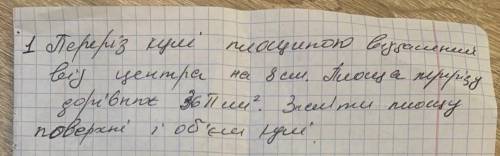 1 Переріз кулі площиною віддалений
від центра на 8 см. Площа перерізу
дорівнює 36π см². Знайти площу
поверхні і об'єм кулі.